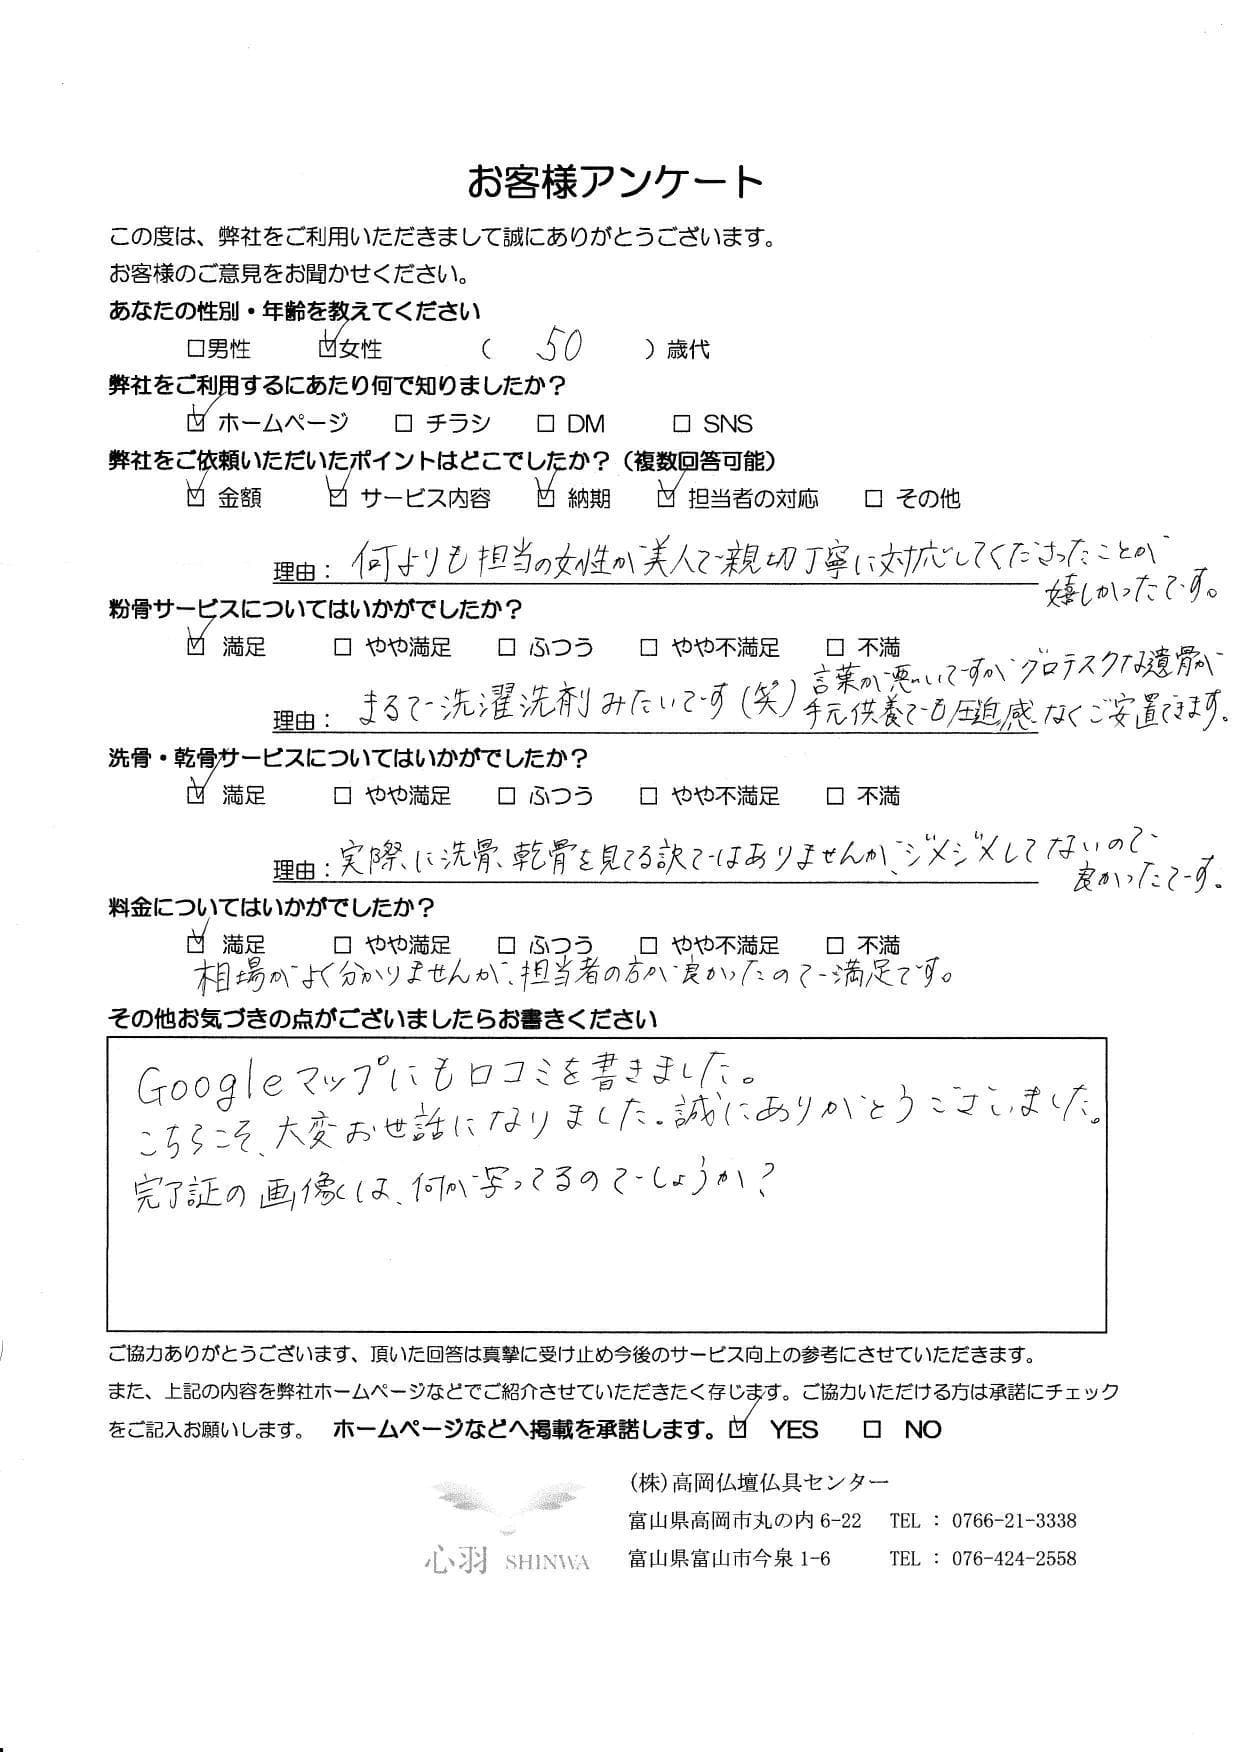 お客様アンケート
この度は、弊社をご利用いただきまして誠にありがとうございます。
お客様のご意見をお聞かせください。
あなたの性別・年齢を教えてください
□男性 ☑女性 ( 50 )歳代
弊社をご利用するにあたり何で知りましたか？
☑ ホームページ □ チラシ □ DM □ SNS
弊社をご依頼いただいたポイントはどこでしたか？（複数回答可能）
☑ 金額 ☑ サービス内容 ☑ 納期 ☑ 担当者の対応 □ その他
理由： 何よりも担当の女性が美人で親切丁寧に対応してくださったことが
嬉しかったです。
粉骨サービスについてはいかがでしたか？
☑ 満足 □ やや満足 □ ふつう □ やや不満足 □ 不満
理由： まるで洗濯洗剤みたいです(笑) 言葉が悪いですがグロテスクな遺骨が
手元供養でも圧迫感なくご安置できます。
洗骨・乾骨サービスについてはいかがでしたか？
☑ 満足 □ やや満足 □ ふつう □ やや不満足 □ 不満
理由： 実際に洗骨、乾骨を見てる訳ではありませんが、ジメジメしてないので
良かったです。
料金についてはいかがでしたか？
☑ 満足 □ やや満足 □ ふつう □ やや不満足 □ 不満
相場がよく分かりませんが、担当者の方が良かったので満足です。
その他お気づきの点がございましたらお書きください
Googleマップにも口コミを書きました。
こちらこそ、大変お世話になりました。誠にありがとうございました。
完了証の画像は、何が写ってるのでしょうか？
ご協力ありがとうございます、頂いた回答は真摯に受け止め今後のサービス向上の参考にさせていただきます。
また、上記の内容を弊社ホームページなどでご紹介させていただきたく存じます。ご協力いただける方は承諾にチェック
をご記入お願いします。 ホームページなどへ掲載を承諾します。☑ YES □ NO
(株)高岡仏壇仏具センター
富山県高岡市丸の内 6-22 TEL : 0766-21-3338
富山県富山市今泉 1-6 TEL : 076-424-2558
心羽 SHINWA